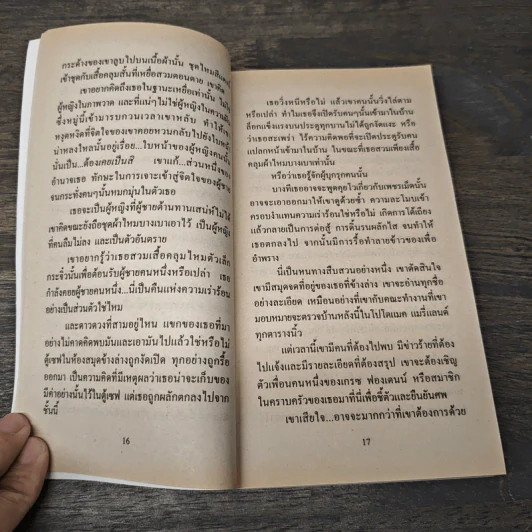 กระด้างของเขาลูบไปบนเนื้อผ้านั้น ชุดไหมสีแดง
เข้าชุดกับเสื้อคลุมสั้นที่เหยื่อสวมตอนตาย เขาคิด
เขาอยากคิดถึงเธอในฐานะเหยื่อเท่านั้น ไม่ใช่
ผู้หญิงในภาพวาด และที่แน่ๆ ไม่ใช่ผู้หญิงในความฝัน
ซึ่งหมู่นี้เข้ามารบกวนเวลาเขาหลับ ทำให้เขา
หงุดหงิดที่จิตใจของเขาคอยหวนกลับไปยังใบหน้า
น่าหลงใหลนั้นอยู่เรื่อย...ใบหน้าของผู้หญิงคนนั้น
นั่นเป็น...ต้องเคยเป็นสิ เขาแก้...ส่วนหนึ่งของ
อำนาจเธอ ทักษะในการเจาะเข้าสู่จิตใจของผู้ชาย
จนกระทั่งคนๆนั้นหมกมุ่นในตัวเธอ
เธอจะเป็นผู้หญิงที่ผู้ชายต้านทานเสน่ห์ไม่ได้
เขาคิดขณะยังถือชุดผ้าไหมบางเบาเอาไว้ เป็นผู้หญิง
ที่คนลืมไม่ลง และเป็นตัวอันตราย
เขาอยากรู้ว่าเธอสวมเสื้อคลุมไหมตัวเล็ก
กระจิ๋วนั้นเพื่อต้อนรับผู้ชายคนหนึ่งหรือเปล่า เธอ
กำลังคอยผู้ชายคนหนึ่ง...นี่เป็นคืนแห่งความเร่าร้อน
อย่างเป็นส่วนตัวใช่ไหม
และดาวดวงที่สามอยู่ไหน แขกของเธอที่มา
อย่างไม่คาดคิดพบมันและเอามันไปแล้วใช่หรือไม่
ตู้เซฟในห้องสมุดข้างล่างถูกงัดเปิด ทุกอย่างถูกรื้อ
ออกมา เป็นความคิดที่มีเหตุผลว่าเธอน่าจะเก็บของ
มีค่าอย่างนั้นไว้ในตู้เซฟ แต่เธอถูกผลักตกลงไปจาก
ชั้นนี้
16
เธอวิ่งหนีหรือไม่ แล้วเขาคนนั้นวิ่งไล่ตาม
หรือเปล่า ทำไมเธอจึงเปิดรับคนๆนั้นเข้ามาในบ้าน
ล็อกแข็งแรงบนประตูทุกบานไม่ได้ถูกงัดแงะ หรือ
ว่าเธอสะเพร่า ไร้ความคิดพอที่จะเปิดประตูรับคน
แปลกหน้าเข้ามาในบ้าน ในขณะที่เธอสวมเพียงเสื้อ
คลุมผ้าไหมบางเบาเท่านั้น
หรือว่าเธอรู้จักผู้บุกรุกคนนั้น
บางทีเธออาจจะพูดคุยโวเกี่ยวกับเพชรเม็ดนั้น
อาจจะเอาออกมาให้เขาดูด้วยซ้ำ ความละโมบเข้า
ครอบงำแทนความเร่าร้อนใช่หรือไม่ เกิดการโต้เถียง
แล้วกลายเป็นการต่อสู้ การดิ้นรนผลักไส จนทำให้
เธอตกลงไป จากนั้นมีการรื้อทำลายข้าวของเพื่อ
อำพราง
นี่เป็นหนทางสืบสวนอย่างหนึ่ง เขาตัดสินใจ
เขามีสมุดจดที่อยู่ของเธอที่ข้างล่าง เขาจะอ่านทุกชื่อ
อย่างละเอียด เหมือนอย่างที่เขากับคณะทำงานที่เขา
มอบหมายจะตรวจบ้านหลังนี้ในไปโตแมค แมรี่แลนด์
ทุกตารางนิ้ว
แต่เวลานี้เขามีคนที่ต้องไปพบ มีข่าวร้ายที่ต้อง
ไปแจ้งและมีรายละเอียดที่ต้องสรุป เขาจะต้องเชิญ
ตัวเพื่อนคนหนึ่งของเกรซ ฟอนเตนน์ หรือสมาชิก
ในครอบครัวของเธอมาที่นี่เพื่อชี้ตัวและยืนยันศพ
เขาเสียใจ...อาจจะมากกว่าที่เขาต้องการด้วย
17